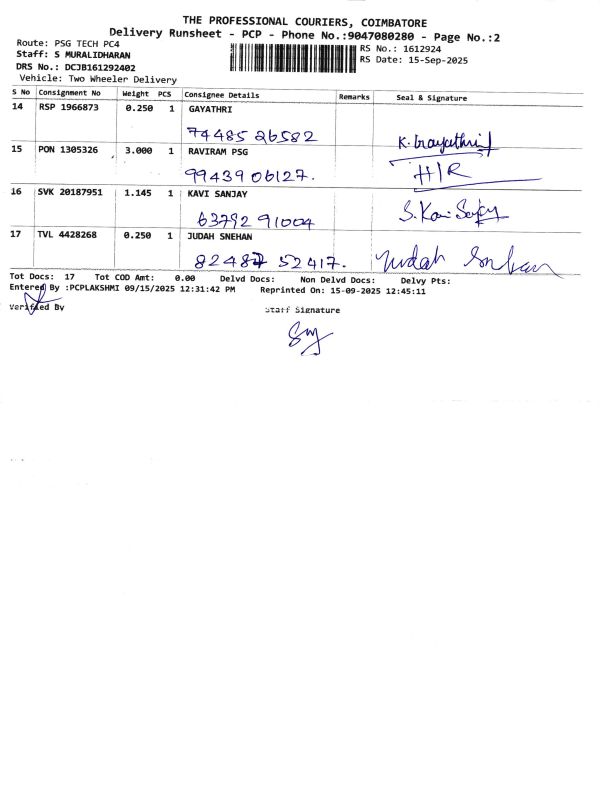 THE PROFESSIONAL COURIERS, COIMBATORE
Delivery Runsheet - PCP - Phone No.:9047080280 - Page No.:2
Route: PSG TECH PC4
RS No.: 1612924
Staff: S MURALIDHARAN
RS Date: 15-Sep-2025
DRS No.: DCJB161292402
Vehicle: Two Wheeler Delivery
S No Consignment No Weight PCS Consignee Details Remarks Seal & Signature
14 RSP 1966873 0.250 1 GAYATHRI
74485 26582 K. Gayathri
15 PON 1305326 3.000 1 RAVIRAM PSG
99439 06127. H/R
16 SVK 20187951 1.145 1 KAVI SANJAY
63792 91004 S. Kavi Sanjay
17 TVL 4428268 0.250 1 JUDAH SNEHAN
82487 52417. Judah Snehan
Tot Docs: 17 Tot COD Amt: 0.00 Delvd Docs: Non Delvd Docs: Delvy Pts:
Entered By :PCPLAKSHMI 09/15/2025 12:31:42 PM Reprinted On: 15-09-2025 12:45:11
Verified By Staff Signature